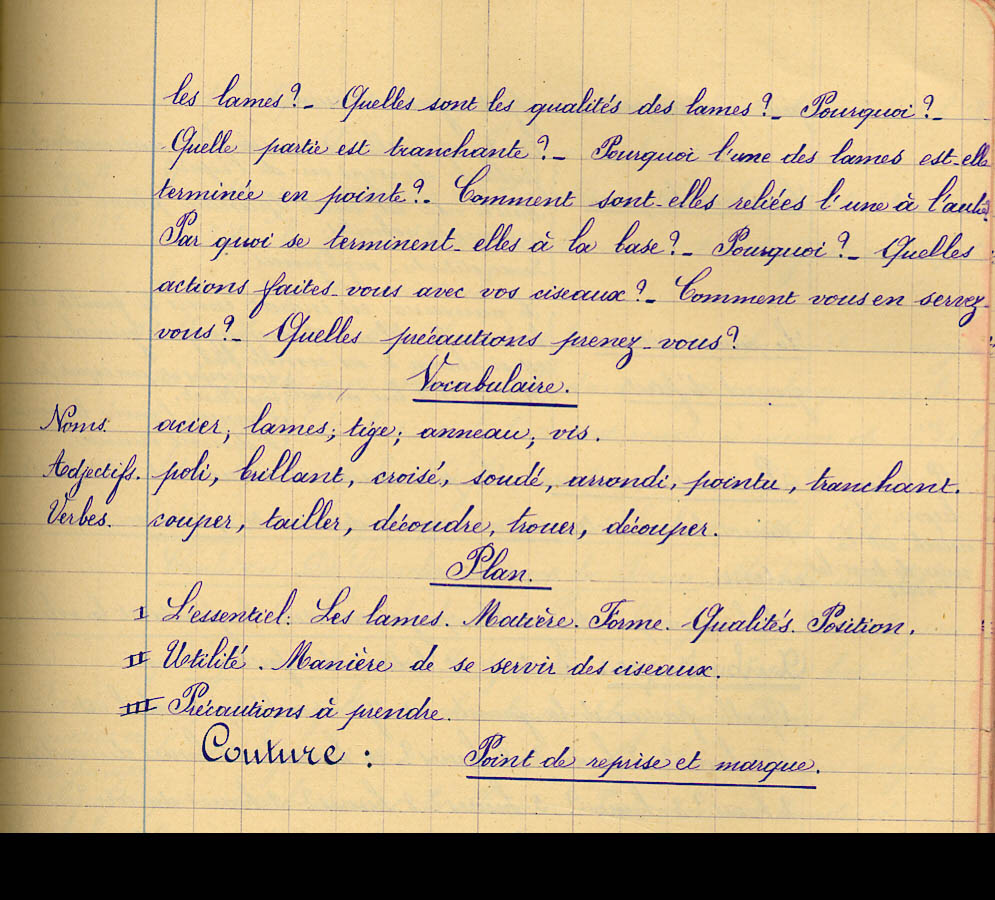 les lames? _ Quelles sont les qualités des lames? _ Pourquoi? _
Quelle partie est tranchante? _ Pourquoi l'une des lames est-elle
terminée en pointe? _ Comment sont-elles reliées l'une à l'autre?
Par quoi se terminent-elles à la base? _ Pourquoi? _ Quelles
actions faites-vous avec vos ciseaux? _ Comment vous en servez-
vous? _ Quelles précautions prenez-vous?
Vocabulaire.
Noms. acier, lames, tige, anneau, vis.
Adjectifs. poli, brillant, croisé, soudé, arrondi, pointu, tranchant.
Verbes. couper, tailler, découdre, trouer, découper.
Plan.
I L'essentiel: Les lames. Matière. Forme. Qualités. Position.
II Utilité. Manière de se servir des ciseaux.
III Précautions à prendre.
Couture : Point de reprise et marque.